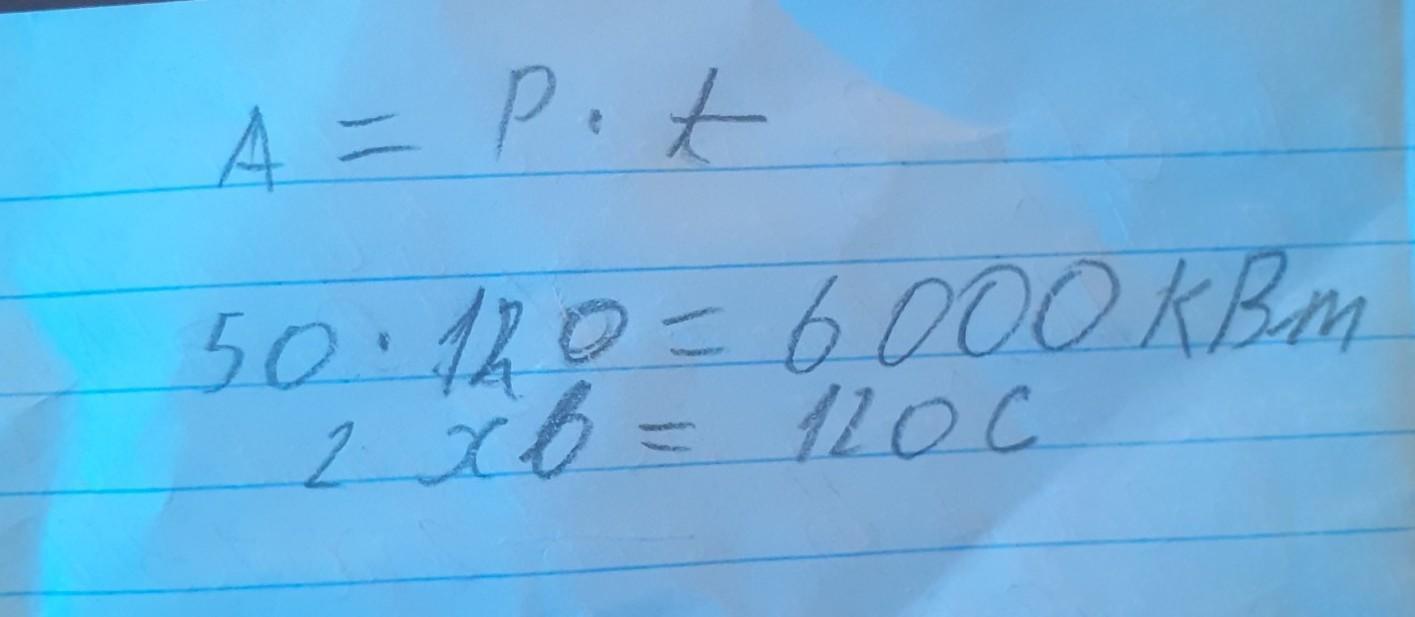 A = P · t
50 · 120 = 6000 кВт
2 хв = 120 с